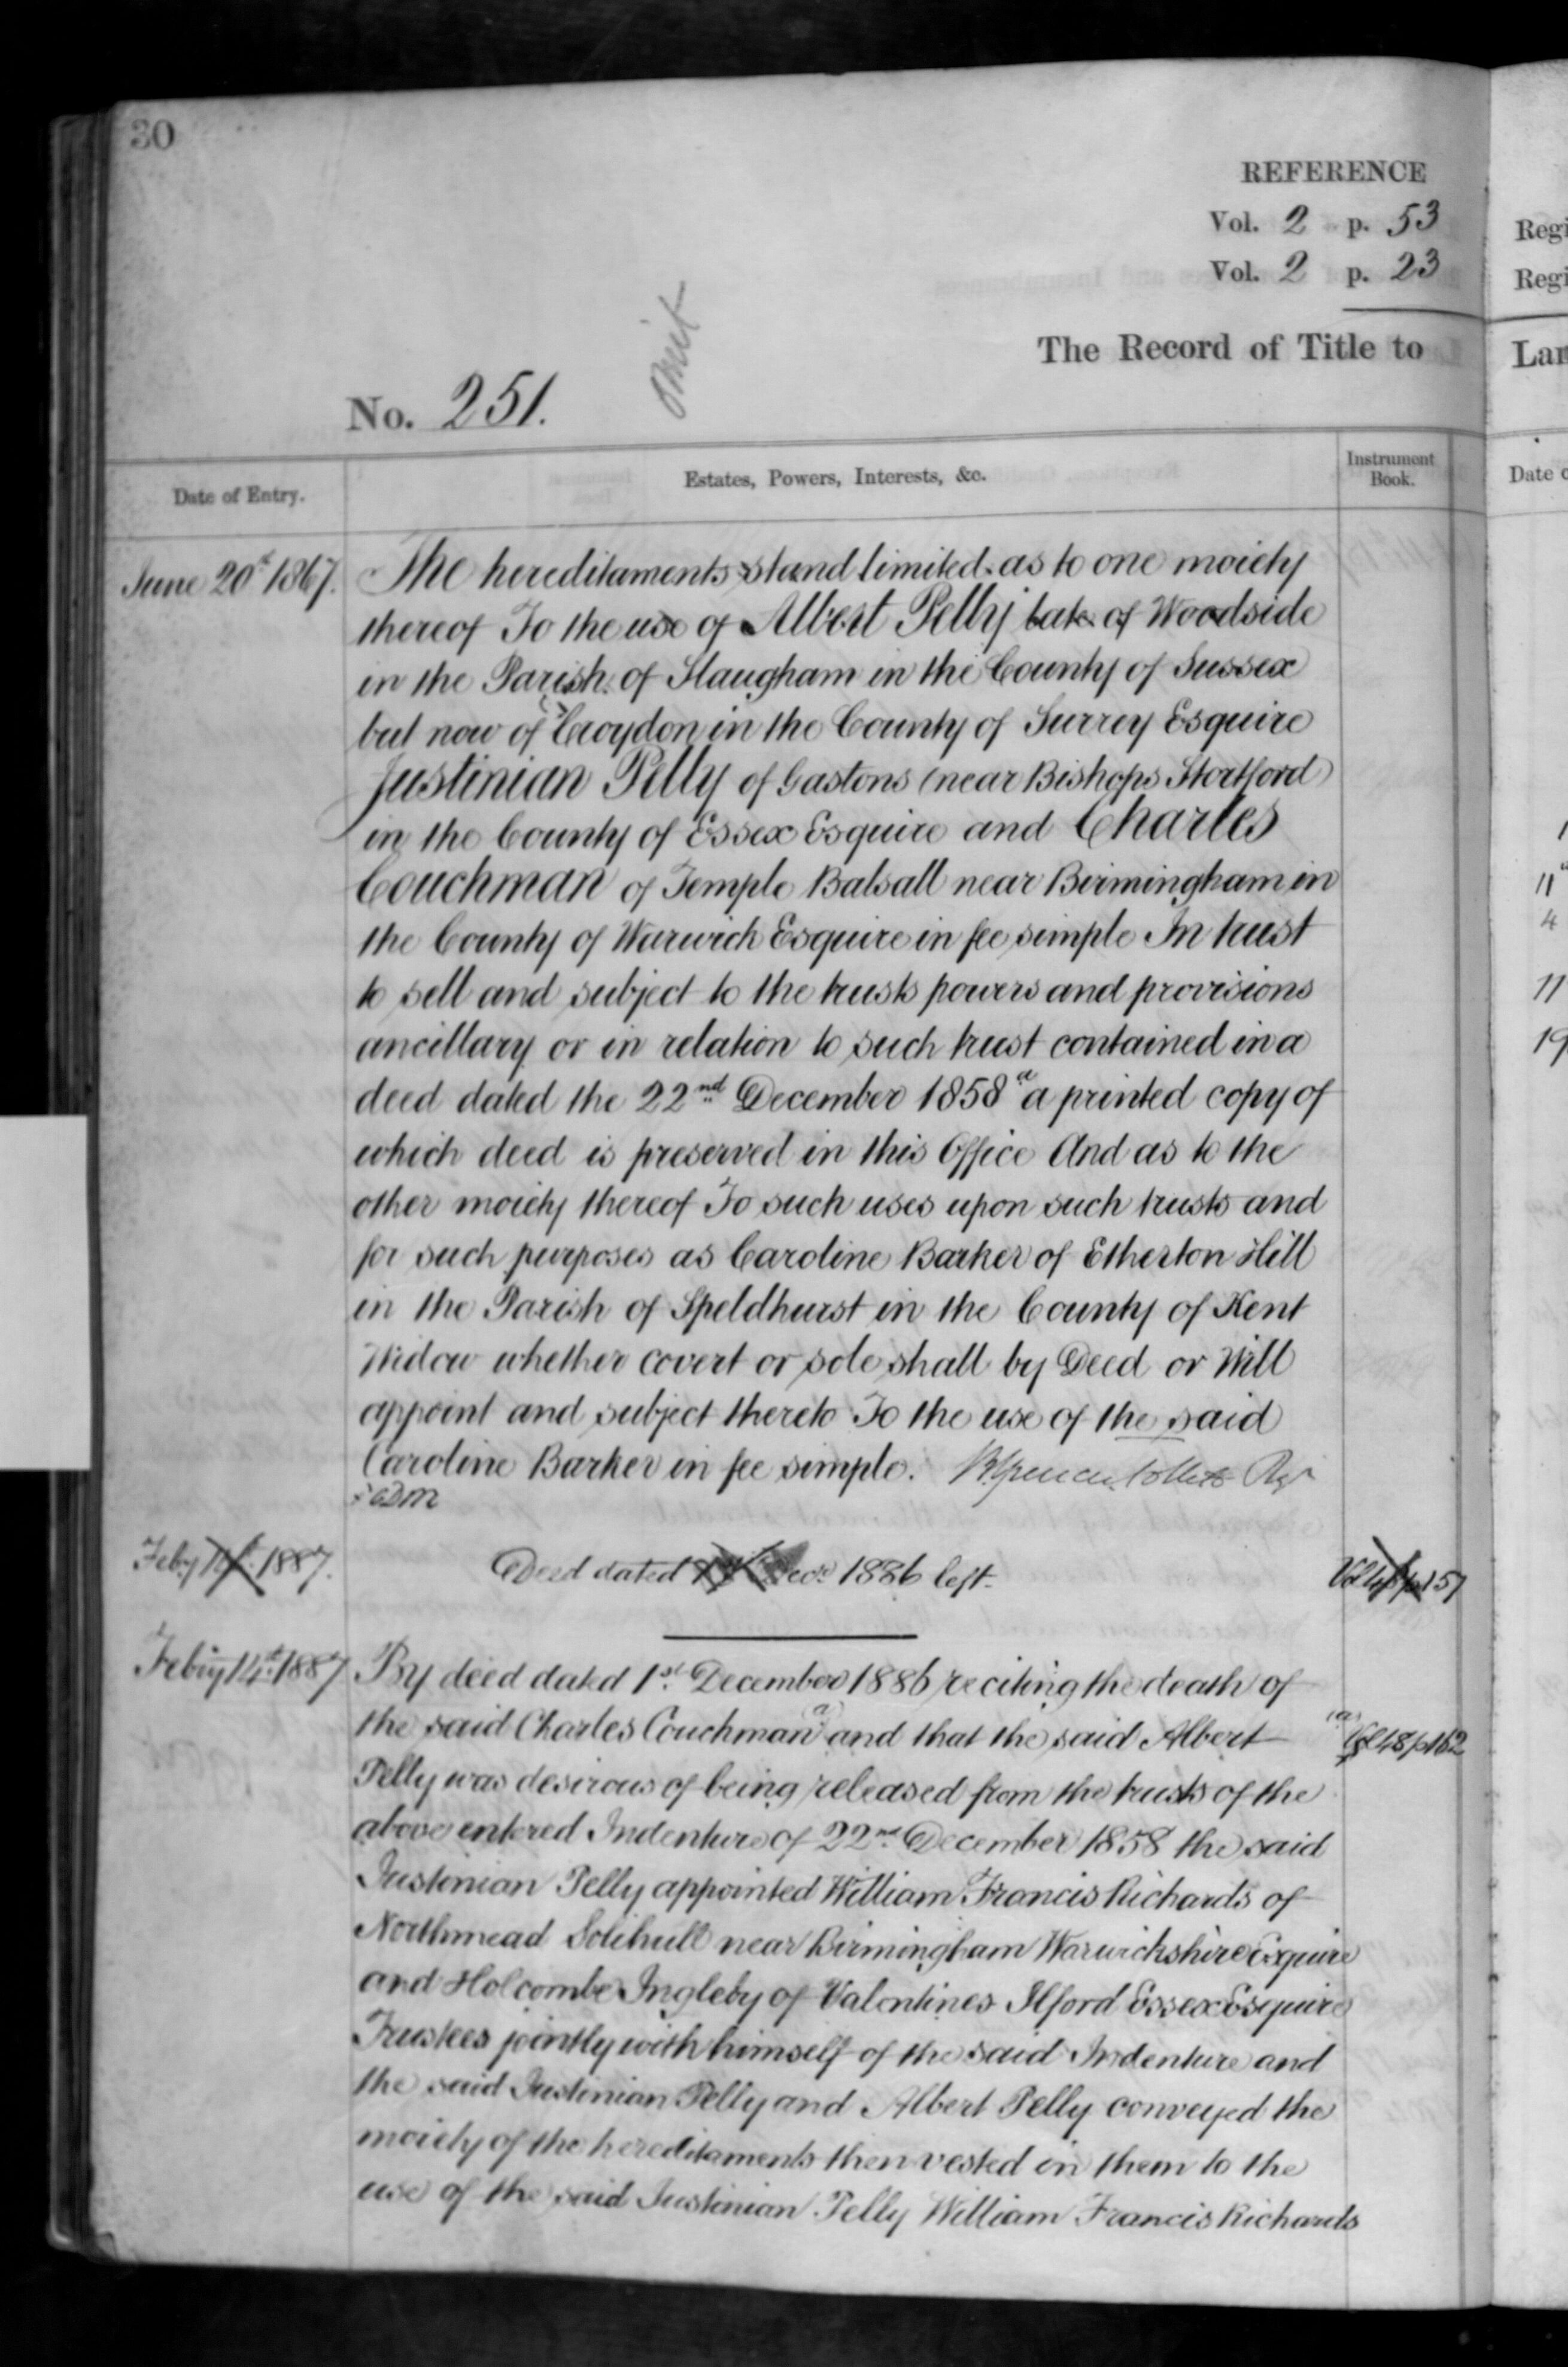 30
REFERENCE
Vol. 2 p. 53
Vol. 2 p. 23
The Record of Title to
omit
No. 251.
Date of Entry.
Estates, Powers, Interests, &c.
Instrument Book.
June 20th 1867.
The hereditaments stand limited as to one moiety
thereof To the use of Albert Pelly late of Woodside
in the Parish of Slaugham in the County of Sussex
but now of Croydon in the County of Surrey Esquire
Justinian Pelly of Gastons (near Bishops Stortford)
in the County of Essex Esquire and Charles
Couchman of Temple Balsall near Birmingham in
the County of Warwick Esquire in fee simple In trust
to sell and subject to the trusts powers and provisions
ancillary or in relation to such trust contained in a
deed dated the 22nd December 1858 a a printed copy of
which deed is preserved in this Office And as to the
other moiety thereof To such uses upon such trusts and
for such purposes as Caroline Barker of Etherton Hill
in the Parish of Speldhurst in the County of Kent
Widow whether covert or sole shall by Deed or Will
appoint and subject thereto To the use of the said
Caroline Barker in fee simple.
Feby 1887.
Deed dated Decr 1886 left.
Feby 14th 1887
By deed dated 1st December 1886 reciting the death of
the said Charles Couchman (a) and that the said Albert
(a) Vol 48 p 162
Pelly was desirous of being released from the trusts of the
above entered Indenture of 22nd December 1858 the said
Justinian Pelly appointed William Francis Richards of
Northmead Solihull near Birmingham Warwickshire Esquire
and Holcombe Ingleby of Valentines Ilford Essex Esquire
Trustees jointly with himself of the said Indenture and
the said Justinian Pelly and Albert Pelly conveyed the
moiety of the hereditaments then vested in them to the
use of the said Justinian Pelly William Francis Richards
Regi
Regi
Lan
Date o
11
4
11
19